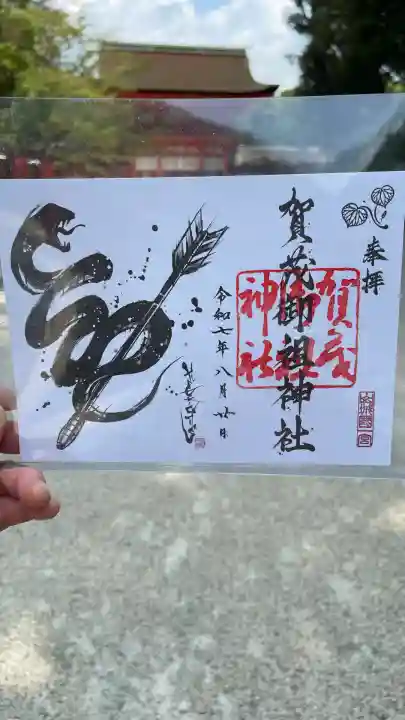 奉拝
賀茂御祖神社
賀茂
御祖
神社
山城國一宮
令和七年八月廿日